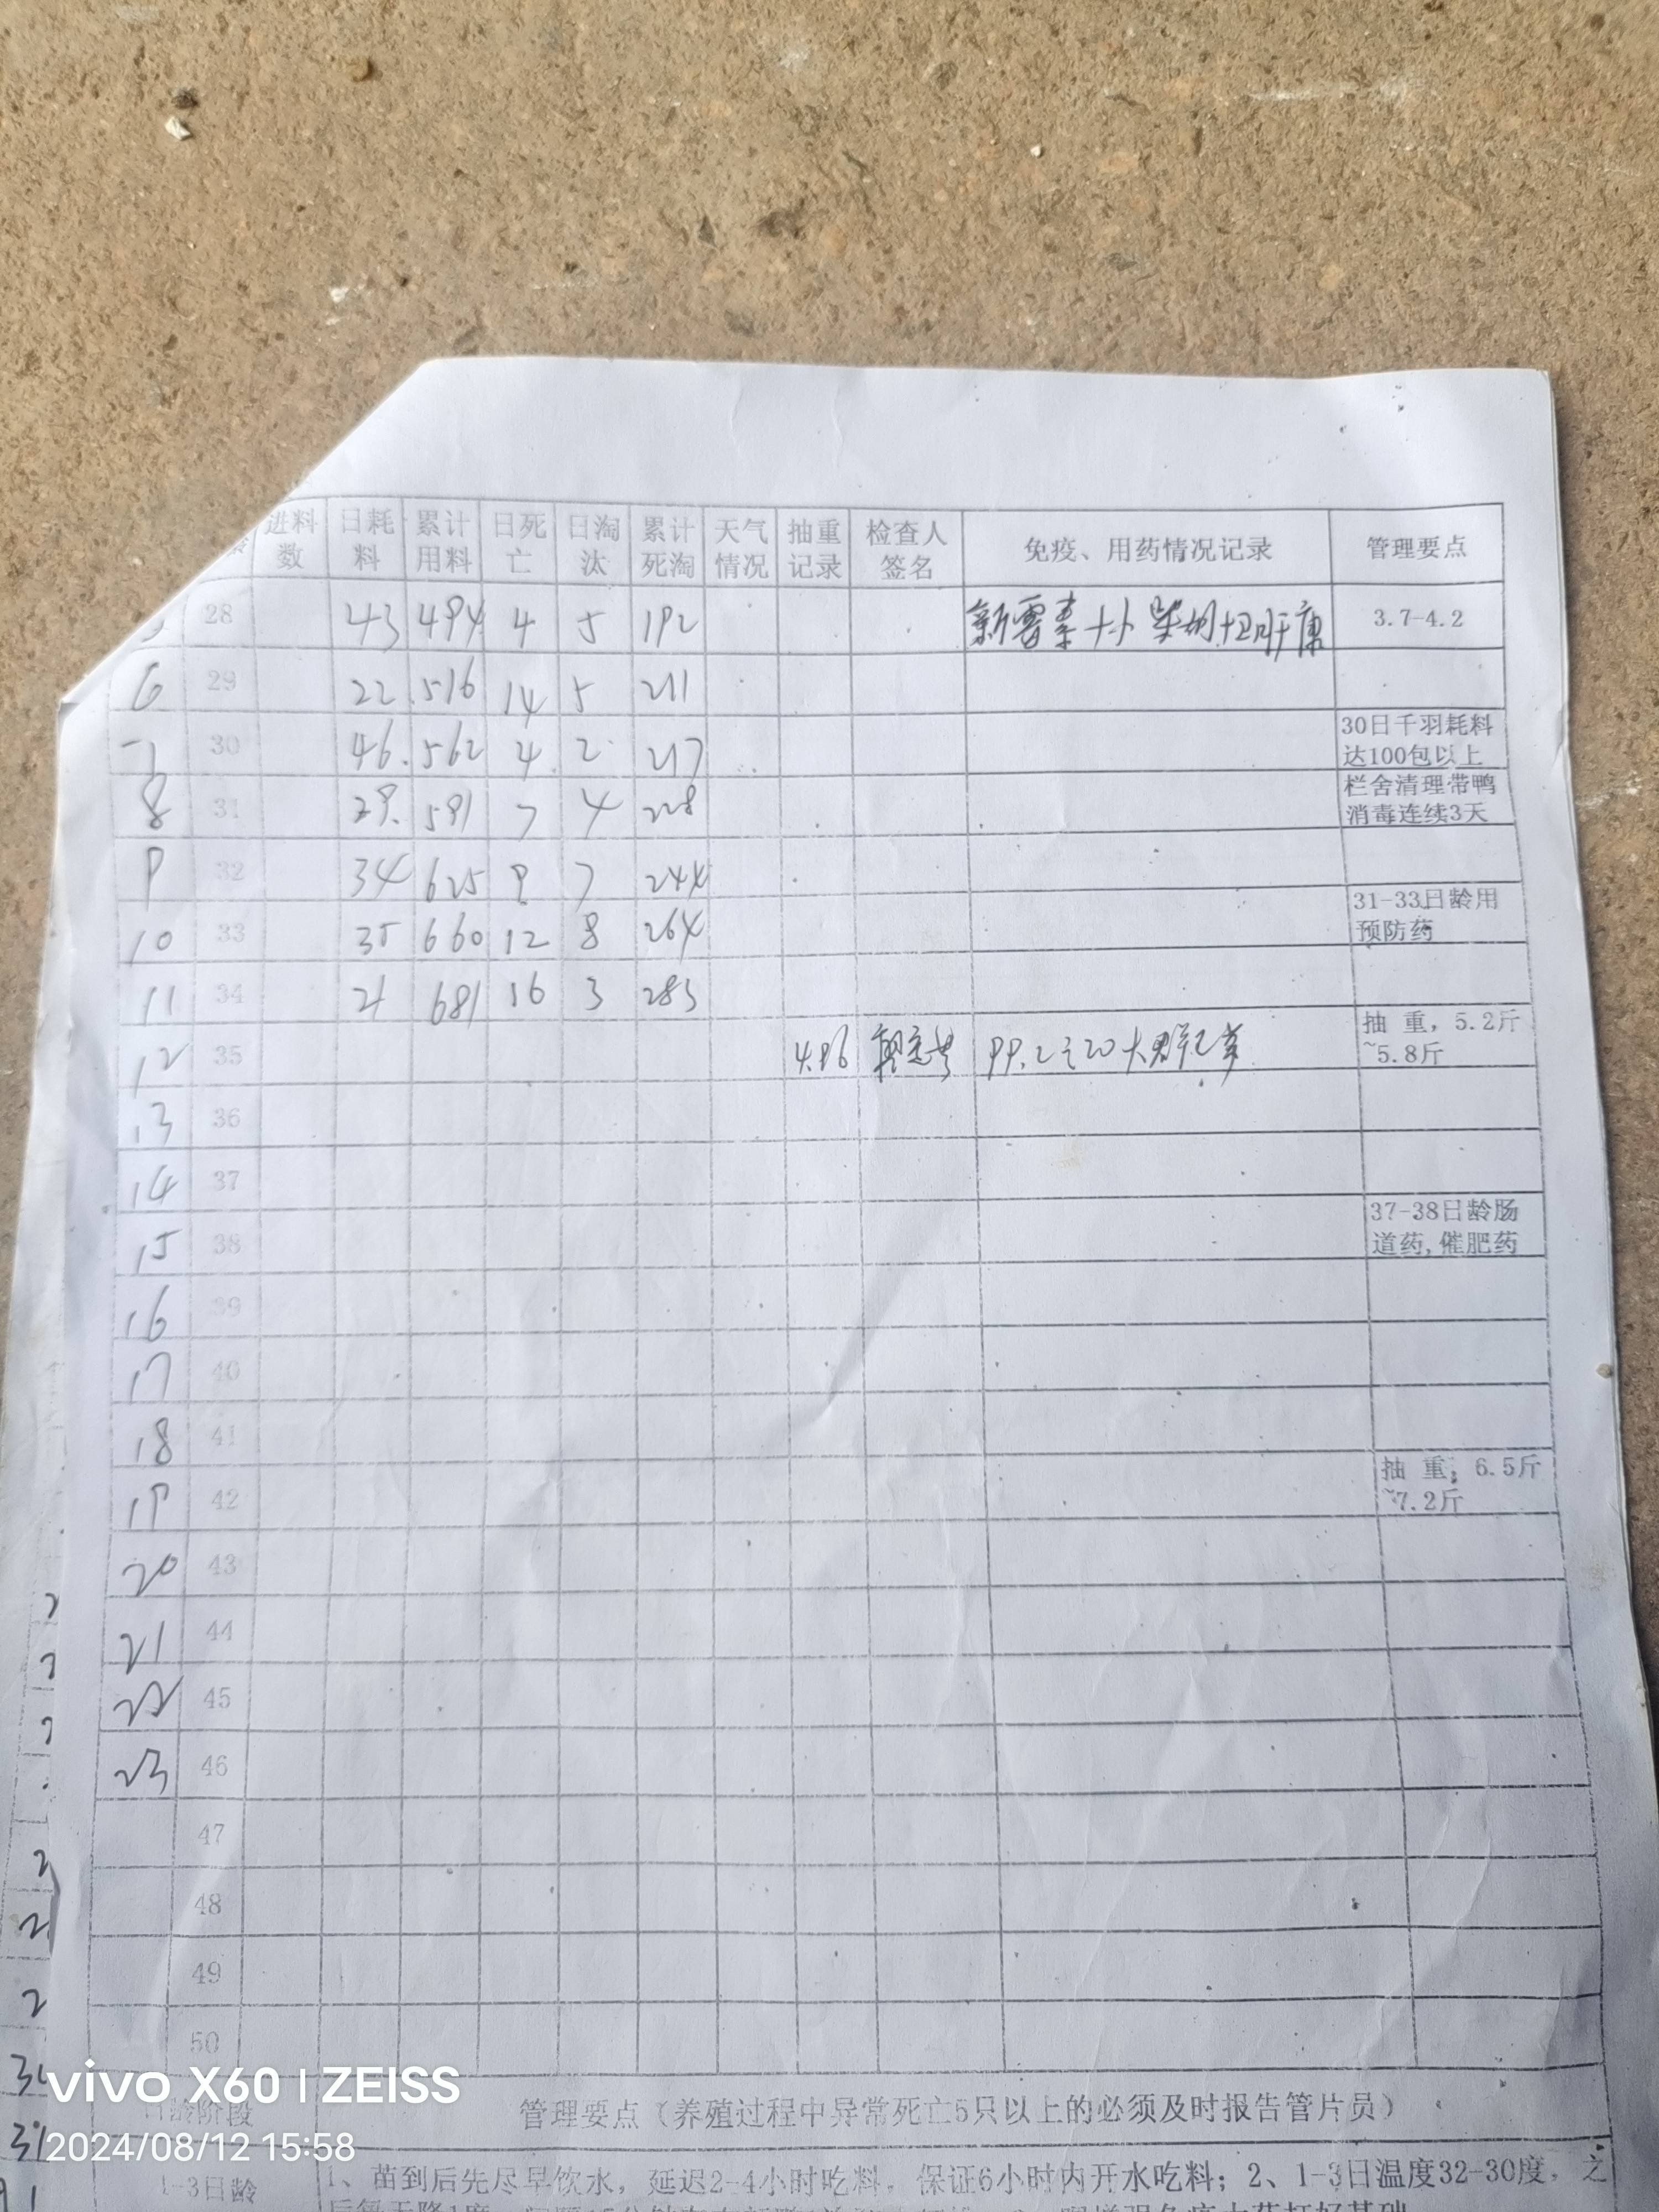 进料 日耗 累计 日死 日淘 累计 天气 抽重 检查人 免疫、用药情况记录 管理要点
数 料 用料 亡 汰 死淘 情况 记录 签名
28 43 494 4 5 192 新霉素 柴胡 肝康 3.7-4.2
6 29 22 516 14 5 211
7 30 46 562 4 2 217 30日千羽耗料
达100包以上
8 31 29 591 7 4 228 栏舍清理带鸭
消毒连续3天
9 32 34 625 9 7 244
10 33 35 660 12 8 264 31-33日龄用
预防药
11 34 21 681 16 3 283
12 35 4.96 大群 抽 重，5.2斤
~5.8斤
13 36
14 37
15 38 37-38日龄肠
道药,催肥药
16 39
17 40
18 41
19 42 抽 重，6.5斤
~7.2斤
20 43
21 44
22 45
23 46
47
48
49
50
日龄阶段 管理要点（养殖过程中异常死亡5只以上的必须及时报告管片员）
1-3日龄 1、苗到后先尽早饮水，延迟2-4小时吃料，保证6小时内开水吃料；2、1-3日温度32-30度，之
vivo X60 | ZEISS
2024/08/12 15:58